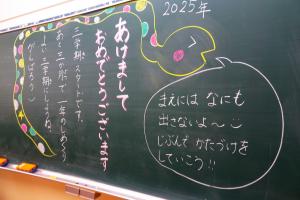 2025年
あけまして
おめでとうございます
三学期スタートです。
あと三か月で一年のしめくくり
よい三学期にしようね。
がんばろう
まえには なにも
出さないよ〜
じぶんで かたづけを
していこう!!